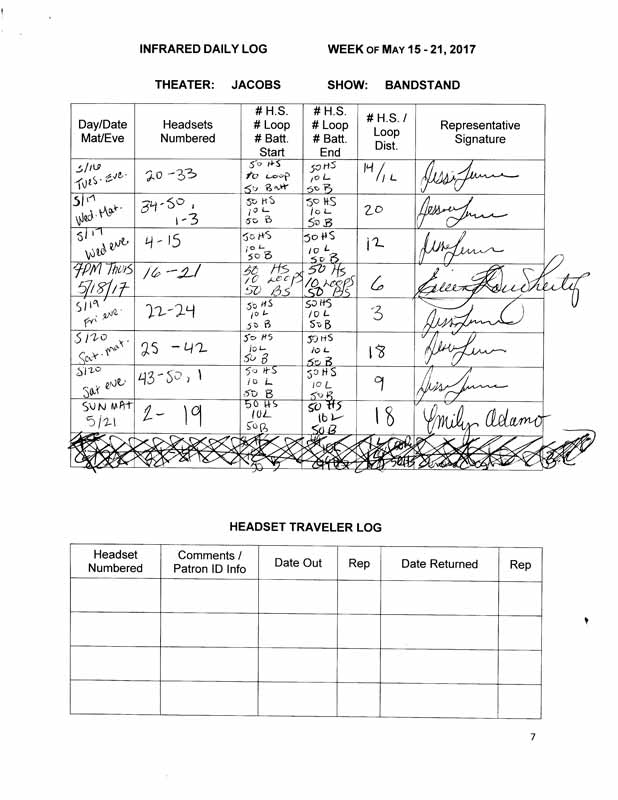 INFRARED DAILY LOG WEEK OF MAY 15 - 21, 2017
THEATER: JACOBS SHOW: BANDSTAND
Day/Date Mat/Eve Headsets Numbered # H.S. # Loop # Batt. Start # H.S. # Loop # Batt. End # H.S. / Loop Dist. Representative Signature
5/16 Tues. Eve. 20-33 50 HS 10 Loop 50 Batt 50 HS 10 L 50 B 14/1L
5/17 Wed. Mat. 34-50, 1-3 50 HS 10 L 50 B 50 HS 10 L 50 B 20
5/17 Wed eve 4-15 50 HS 10 L 50 B 50 HS 10 L 50 B 12
7PM THURS 5/18/17 16-21 50 HS 10 LOOPS 50 BS 50 HS 10 LOOPS 50 BS 6 Eileen Dougherty
5/19 Fri eve. 22-24 50 HS 10 L 50 B 50 HS 10 L 50 B 3
5/20 Sat. mat. 25-42 50 HS 10 L 50 B 50 HS 10 L 50 B 18
5/20 Sat eve 43-50, 1 50 HS 10 L 50 B 50 HS 10 L 50 B 9
SUN MAT 5/21 2-19 50 HS 10L 50B 50 HS 10 L 50 B 18 Emilyn Adamo
HEADSET TRAVELER LOG
Headset Numbered Comments / Patron ID Info Date Out Rep Date Returned Rep
7